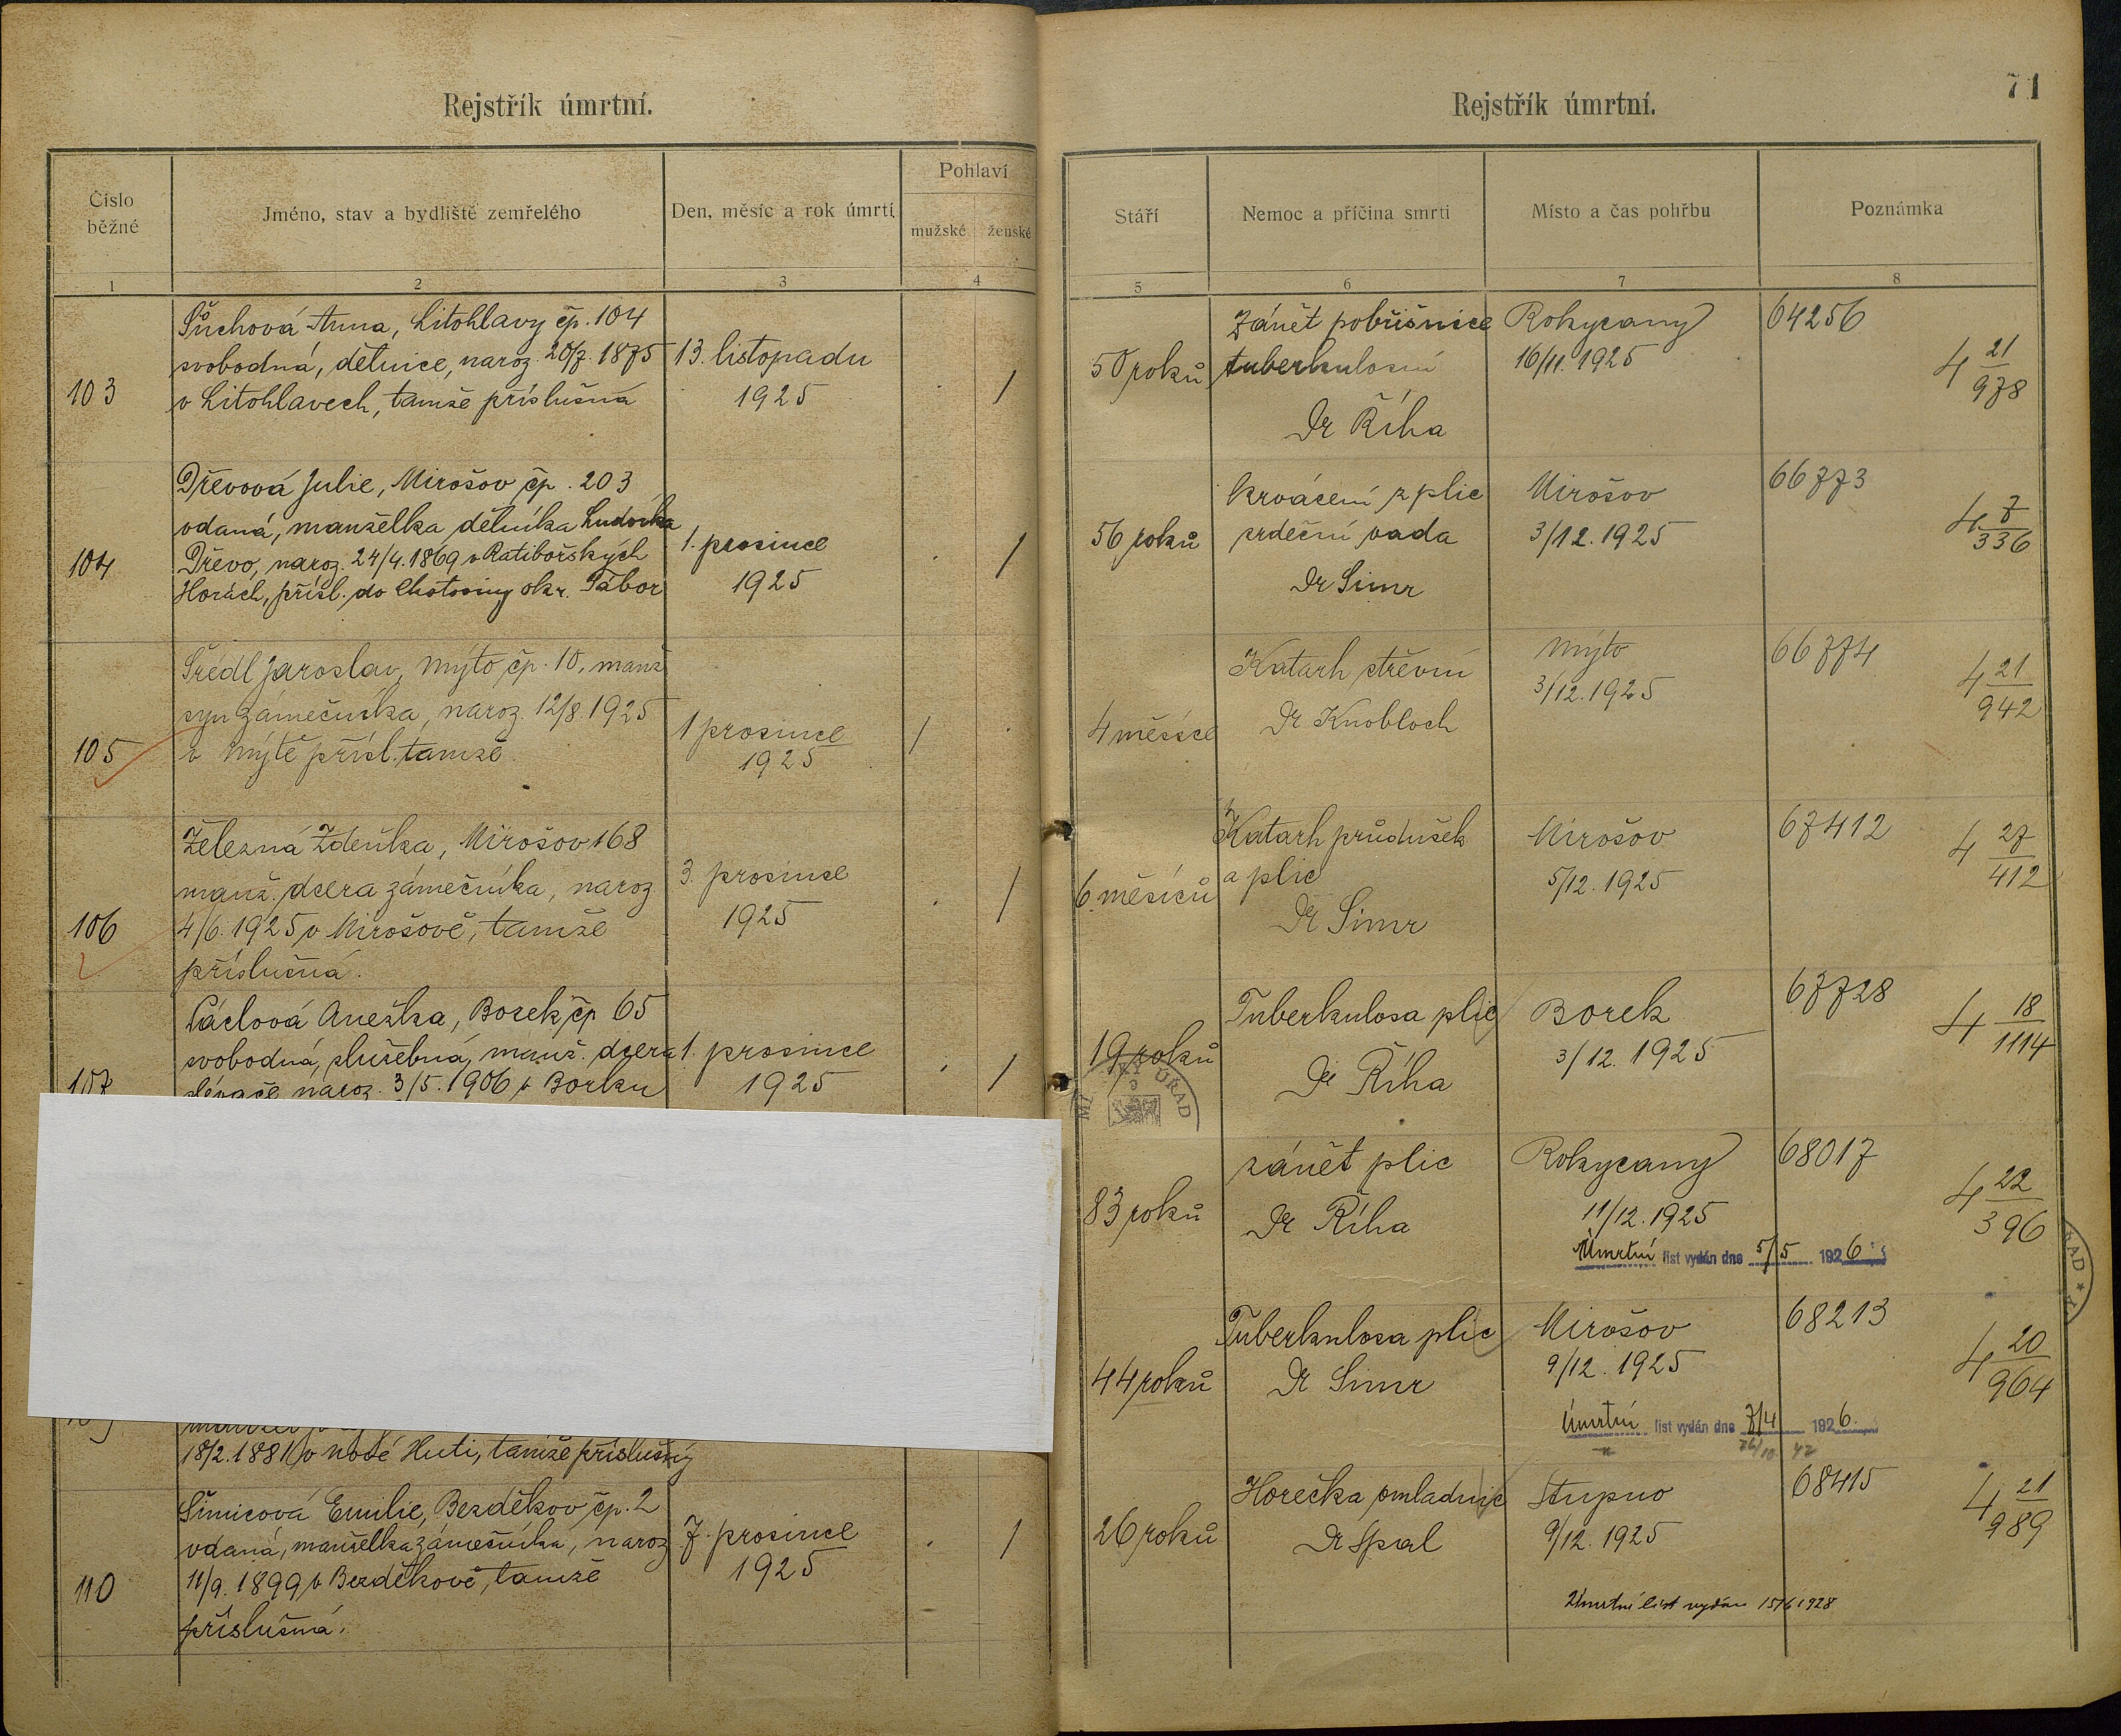 Rejstřík úmrtní.
Číslo běžné
Jméno, stav a bydliště zemřelého
Den, měsíc a rok úmrtí
Pohlaví
mužské ženské
1 2 3 4
103
Sůchová Anna, Litohlavy čp. 104
svobodná, dělnice, naroz. 20/7. 1875
v Litohlavech, tamže příslušná
13. listopadu
1925
/
104
Dřevová Julie, Mirošov čp. 203
vdaná, manželka dělníka Ludvíka
Dřevo, naroz. 24/4. 1869 v Ratibořských
Horách, přísl. do Chotoviny okr. Tábor
1. prosince
1925
/
105
Šrédl Jaroslav, Mýto čp. 10, manž
syn zámečníka, naroz. 12/8. 1925
v Mýtě přísl. tamže.
1 prosince
1925
/
106
Železná Zdeňka, Mirošov 168
manž. dcera zámečníka, naroz
4/6. 1925 v Mirošově, tamže
příslušná.
3. prosince
1925
/
107
Láclová Anežka, Borek čp 65
svobodná, služebná, manž. dcera
slévače naroz. 3/5. 1906 v Borku
1. prosince
1925
/
18/2. 1881 v nové Huti, tamže příslušný
110
Šimicová Emilie, Bezděkov čp. 2
vdaná, manželka zámečníka, naroz
11/9. 1899 v Bezděkově, tamže
příslušná.
7. prosince
1925
/
71
Rejstřík úmrtní.
Stáří
Nemoc a příčina smrti
Místo a čas pohřbu
Poznámka
5 6 7 8
50 roků
Zánět pobřišnice
tuberkulosní
Dr Říha
Rokycany
16/11. 1925
64256
4 21/978
56 roků
krvácení z plic
srdeční vada
Dr Simr
Mirošov
3/12. 1925
66773
4 7/336
4 měsíce
Katarh střevní
Dr Knobloch
Mýto
3/12. 1925
66774
4 21/942
6 měsíců
Katarh průdušek
a plic
Dr Simr
Mirošov
5/12. 1925
67412
4 27/412
19 roků
Tuberkulosa plic
Dr Říha
Borek
3/12. 1925
67728
4 18/1114
ÚŘAD
83 roků
zánět plic
Dr Říha
Rokycany
11/12. 1925
Úmrtní list vydán dne 5/5 1926
68017
4 22/396
44 roků
Tuberkulosa plic
Dr Simr
Mirošov
9/12. 1925
Úmrtní list vydán dne 7/4 1926.
68213
4 20/964
26 roků
Horečka omladnic
Dr Spal
Stupno
9/12. 1925
Úmrtní list vydán 15/6 1928
68415
4 21/989